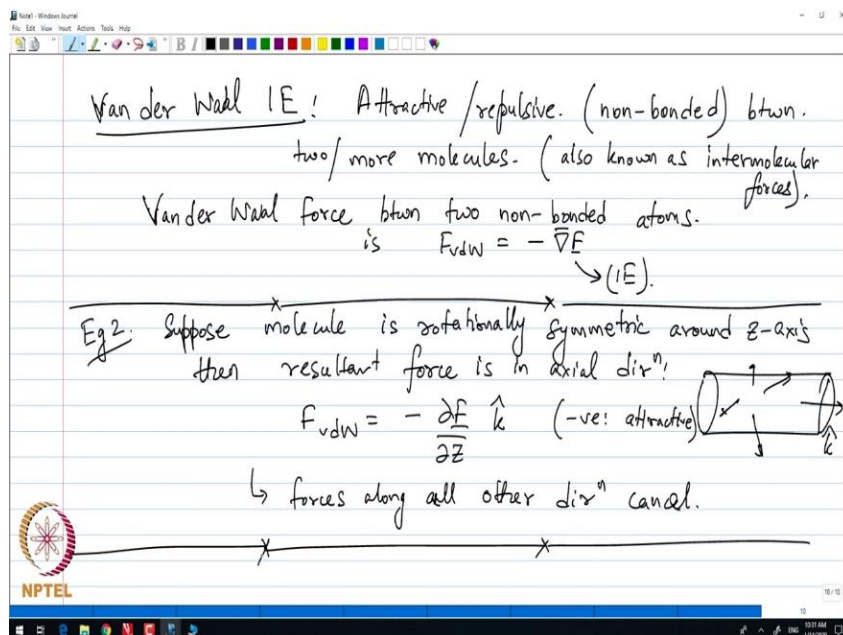 Note1 - Windows Journal
File Edit View Insert Actions Tools Help
Van der Waal IE! Attractive/repulsive. (non-bonded) btwn.
two/more molecules. (also known as intermolecular
forces).
Van der Waal force btwn two non-bonded atoms.
is F_vdW = - ∇̄E
↘(IE).
Eg2. Suppose molecule is rotationally symmetric around z-axis
then resultant force is in axial dirⁿ!
F_vdW = - ∂E/∂z k̂ (-ve: attractive)
k̂
↳ forces along all other dirⁿ cancel.
NPTEL
10/10
10
ENG 10:31 AM